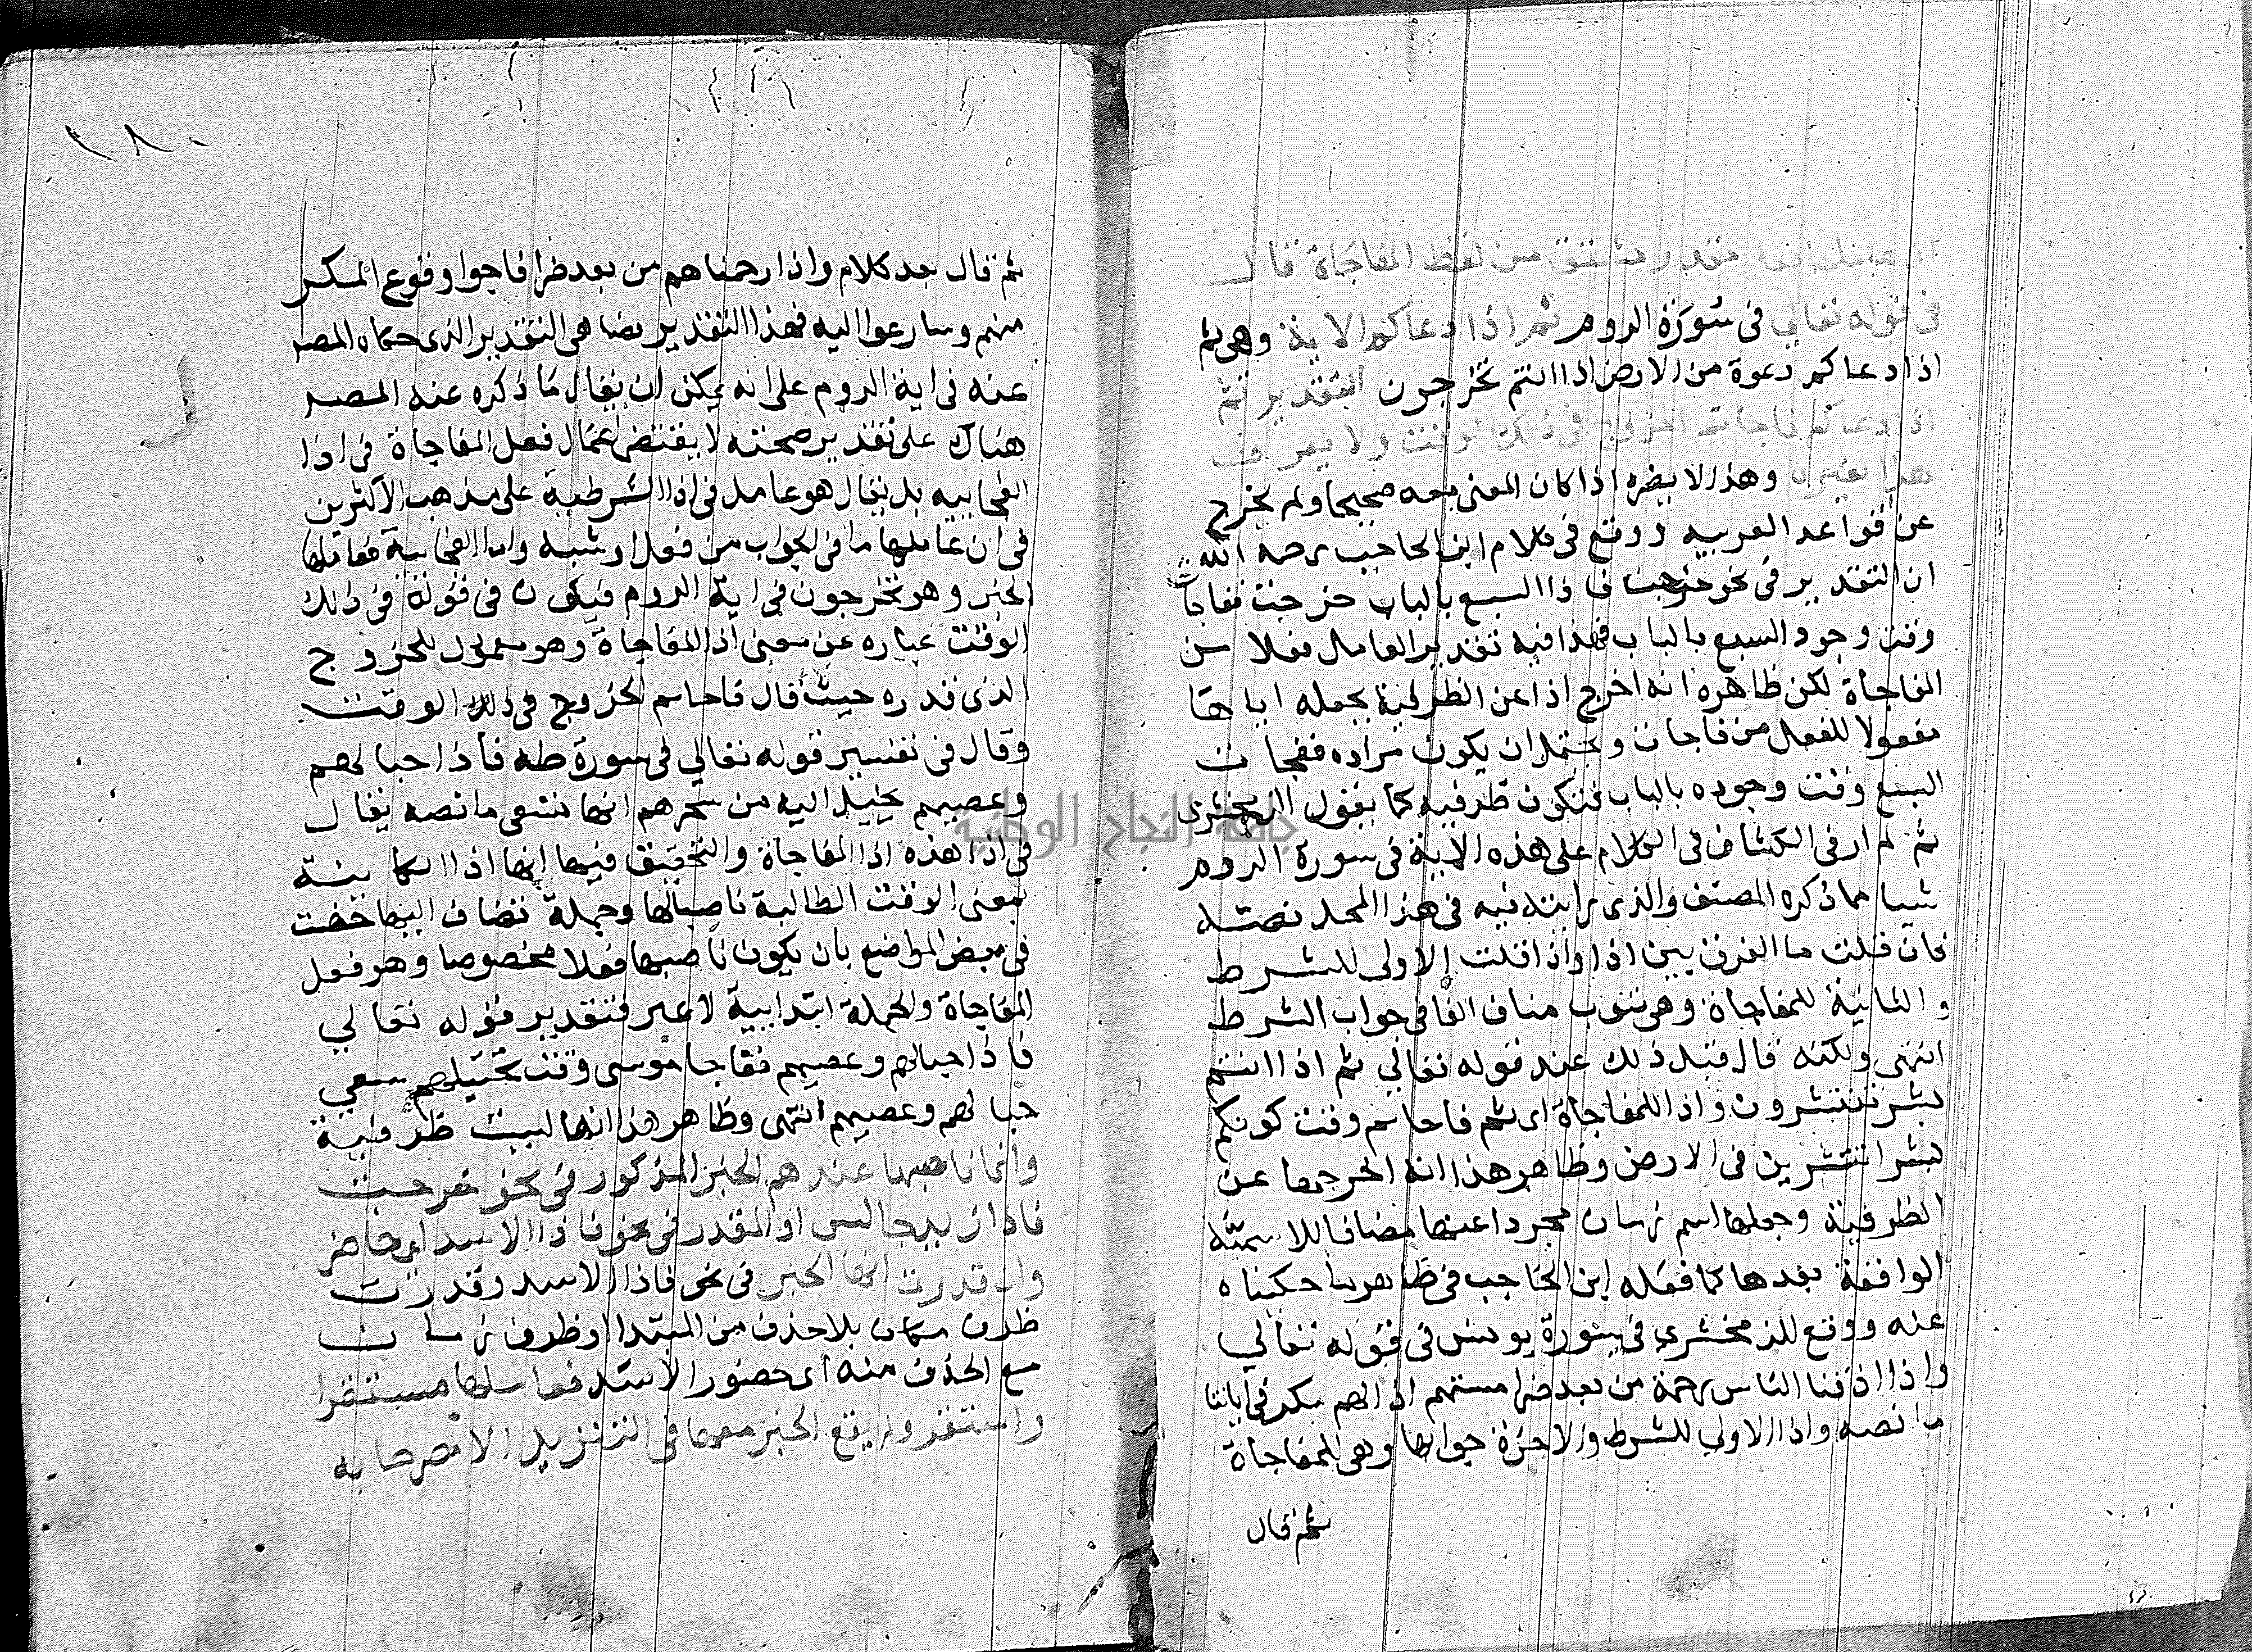 ان عاملها فعل مقدر مشتق من لفظ المفاجاة قال
في قوله تعالي في سورة الروم ثم اذا دعاكم الاية وهي ثم
اذا دعاكم دعوة من الارض اذا انتم تخرجون التقدير ثم
اذا دعاكم فاجاتم الخروج في ذلك الوقت ولا يعرف
هذا لغيره وهذا لا يضره اذا كان المعني معه صحيحا ولم يخرج
عن قواعد العربيه ووقع في كلام ابن الحاجب رحمه الله
ان التقدير في نحو خرجت فاذا السبع بالباب خرجت ففاجات
وقت وجود السبع بالباب فهذا فيه تقدير العامل فعلا من
المفاجأة لكن ظاهره انه اخرج اذا عن الظرفية بجعله اياها
مفعولا للفعل من فاجات ويحتمل ان يكون مراده ففجات
السبع وقت وجوده بالباب فتكون ظرفيه كما يقول الزمخشري
ثم لم ار في الكشاف في الكلام على هذه الاية في سورة الروم
شيا مما ذكره المصنف والذي رايته فيه في هذا المحل نصه
فان قلت ما الفرق بين اذا واذا قلت الاولى للشرط
والثانية للمفاجاة وهي تنوب مناب الفا في جواب الشرط
انتهى ولكنه قال قبل ذلك عند قوله تعالي ثم اذا انتم
بشر تنتشرون واذا للمفاجاة اي ثم فاجاتم وقت كونكم
بشرا منتشرين في الارض وظاهر هذا انه اخرجها عن
الظرفية وجعلها اسم زمان مجردا عنها مضافا للاسمية
الواقعة بعدها كما فعله ابن الحاجب في ظاهر ما حكيناه
عنه ووقع للزمخشري في سورة يونس في قوله تعالي
واذا اذقنا الناس رحمة من بعد ضرا مستهم اذا لهم مكر في اياتنا
ما نصه واذا الاولي للشرط والاخرة جوابها وهي للمفاجأة
ثم قال
١٨٠
ثم قال بعد كلام واذا رحمناهم من بعد ضرا فاجوا وقوع المكر
منهم وسارعوا اليه فهذا التقدير يضاهي التقدير الذي حكاه المصـ
عنه في اية الروم على انه يمكن ان يقال ما ذكره عنه المصـ
هناك على تقدير صحته لا يقتضي اعمال فعل المفاجاة في اذا
الفجاييه بل يقال هو عامل في اذا الشرطية على مذهب الاكثرين
في ان عاملها ما في الجواب من فعل او شبهه واما الفجايية فعاملها
الخبر وهو تخرجون في اية الروم فيكون في قوله في ذلك
الوقت عباره عن معنى اذا المفاجاة وهو معمول للخروج
الذي قدره حيث قال فاجاتم الخروج في ذلك الوقت
وقال في تفسير قوله تعالي في سورة طه فأذا حبالهم
وعصيهم يخيل اليه من سحرهم انها تسعى ما نصه يقال
في اذا هذه اذا المفاجاة والتحقيق فيها انها اذا الكاينة
بمعنى الوقت الطالبة ناصبا لها وجملة تضاف اليها خصت
في بعض المواضع بان يكون ناصبها فعلا مخصوصا وهو فعل
المفاجاة والجملة ابتدايية لا غير فتقدير قوله تعالي
فاذا حبالهم وعصيهم ففاجا موسى وقت تخييلهم سعي
حبالهم وعصيهم انتهى وظاهر هذا انها ليست ظرفية
وانما ناصبها عندهم الخبر المذكور في نحو خرجت
فاذا زيد جالس او المقدر في نحو فاذا الاسد اي حاضر
وان قدرت انها الخبر في نحو فاذا الاسد وقدرت
ظرف مكان بلا حذف من المبتدا او ظرف زمان
مع الحذف منه اي حضور الاسد فعاملها مستقرا
واستقر ولم يقع الخبر معها في التنزيل الا مصرحا به
جامعة النجاح الوطنية